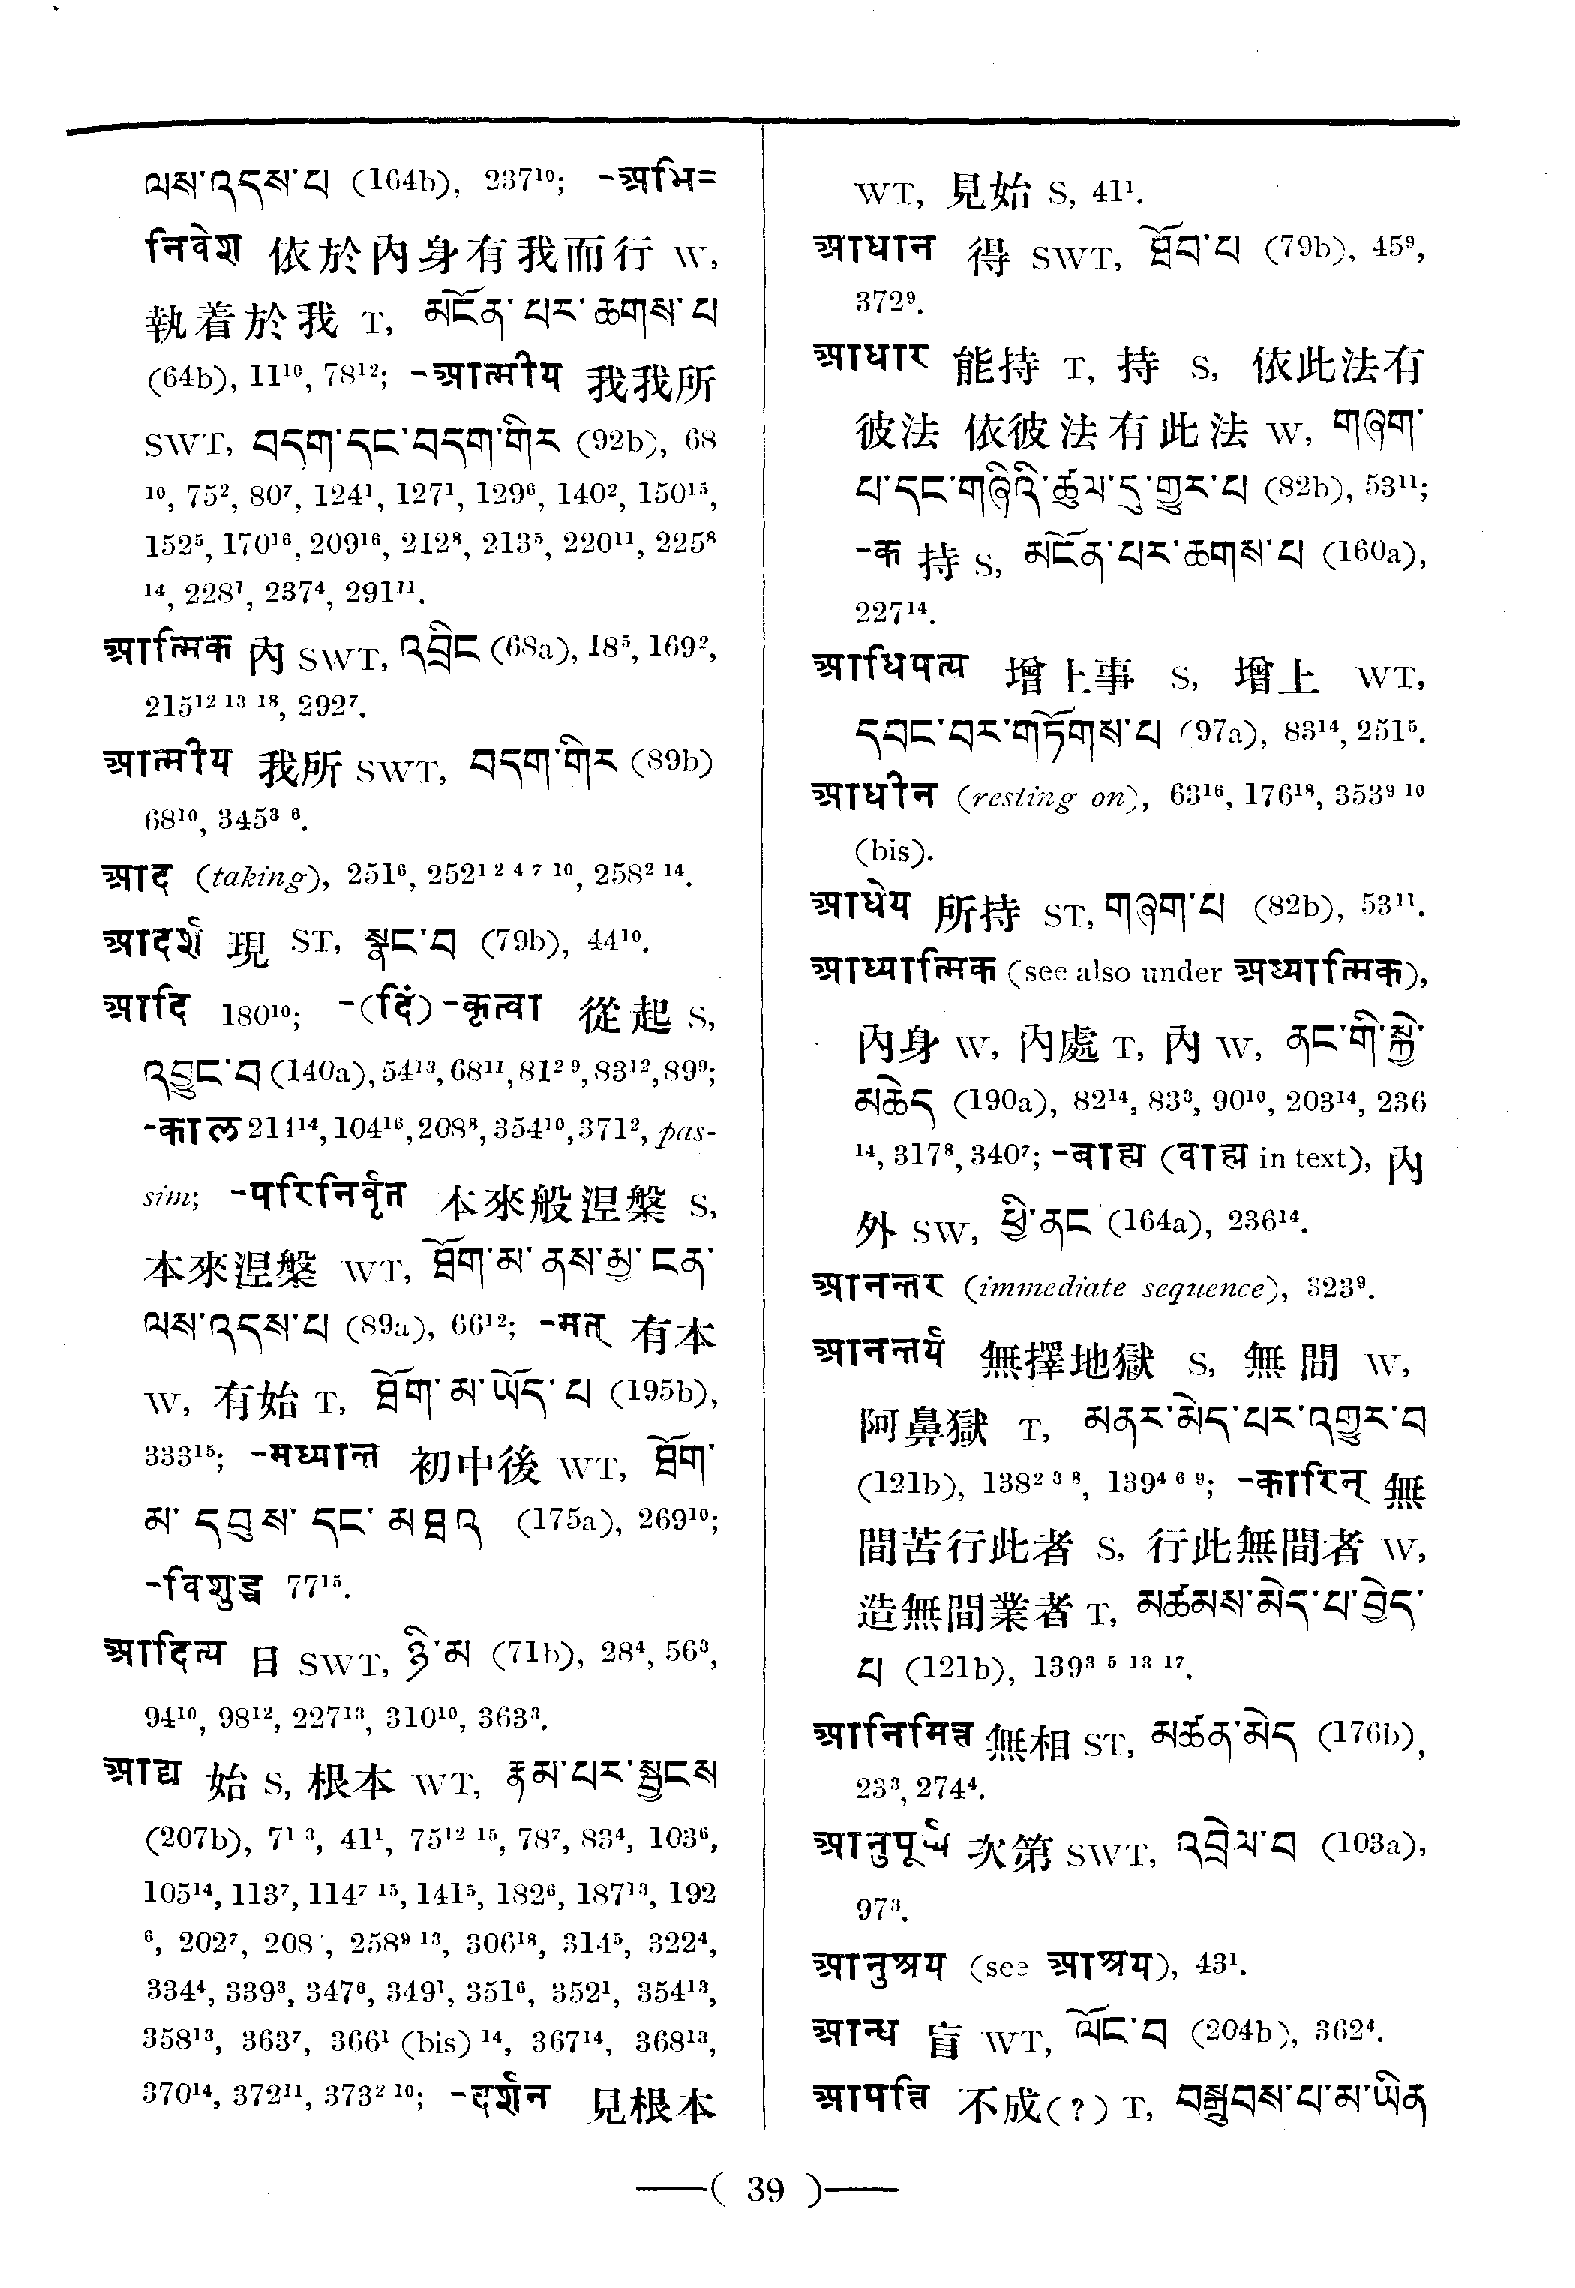 ལས་འདས་པ (164b), 237¹⁰; -अभि=
निवेश 依於內身有我而行 W,
執着於我 T, མངོན་པར་ཆགས་པ
(64b), 11¹⁰, 78¹²; -आत्मीय 我我所
SWT, བདག་དང་བདག་གིར (92b), 68
¹⁰, 75², 80⁷, 124¹, 127¹, 129⁶, 140², 150¹⁵,
152⁵, 170¹⁶, 209¹⁶, 212⁸, 213⁵, 220¹¹, 225⁸
¹⁴, 228⁷, 237⁴, 291¹¹.
आत्मिक 內 SWT, འབྲིང (68a), 18⁵, 169²,
215¹² ¹³ ¹⁸, 292⁷.
आत्मीय 我所 SWT, བདག་གིར (89b)
68¹⁰, 345³ ⁶.
आद (taking), 251⁶, 252¹ ² ⁴ ⁷ ¹⁰, 258² ¹⁴.
आदर्श 現 ST, སྣང་བ (79b), 44¹⁰.
आदि 180¹⁰; -(दिं) -कृत्वा 從起 S,
འབྱུང་བ (140a), 54¹³, 68¹¹, 81² ⁹, 83¹², 89⁹;
-काल 211¹⁴, 104¹⁶, 208⁸, 354¹⁰, 371², pas-
sim; -परिनिर्वृत 本來般涅槃 S,
本來涅槃 WT, ཐོག་མ་ནས་མྱ་ངན་
ལས་འདས་པ (89a), 66¹²; -मत् 有本
W, 有始 T, ཐོག་མ་ཡོད་པ (195b),
333¹⁵; -मध्यान्त 初中後 WT, ཐོག་
མ་དབུས་དང་མཐའ (175a), 269¹⁰;
-विशुद्ध 77¹⁵.
आदित्य 日 SWT, ཉི་མ (71b), 28⁴, 56³,
94¹⁰, 98¹², 227¹³, 310¹⁰, 363³.
आद्य 始 S, 根本 WT, རྣམ་པར་སྦྱངས
(207b), 7¹ ³, 41¹, 75¹² ¹⁵, 78⁷, 83⁴, 103⁶,
105¹⁴, 113⁷, 114⁷ ¹⁵, 141⁵, 182⁶, 187¹³, 192
⁶, 202⁷, 208, 258⁹ ¹³, 306¹⁸, 314⁵, 322⁴,
334⁴, 339³, 347⁶, 349¹, 351⁶, 352¹, 354¹³,
358¹³, 363⁷, 366¹ (bis) ¹⁴, 367¹⁴, 368¹³,
370¹⁴, 372¹¹, 373² ¹⁰; -दर्शन 見根本
WT, 見始 S, 41¹.
आधान 得 SWT, ཐོབ་པ (79b), 45⁹,
372⁹.
आधार 能持 T, 持 S, 依此法有
彼法 依彼法有此法 W, གཞག་
པ་དང་གཞིའི་ཚུལ་དུ་གྱུར་པ (82b), 53¹¹;
-क 持 S, མངོན་པར་ཆགས་པ (160a),
227¹⁴.
आधिपत्य 增上事 S, 增上 WT,
དབང་བར་གཏོགས་པ (97a), 83¹⁴, 251⁵.
आधीन (resting on), 63¹⁶, 176¹⁸, 353⁹ ¹⁰
(bis).
आधेय 所持 ST, གཞག་པ (82b), 53¹¹.
आध्यात्मिक (see also under अध्यात्मिक),
內身 W, 內處 T, 內 W, ནང་གི་སྐྱེ་
མཆེད (190a), 82¹⁴, 83³, 90¹⁰, 203¹⁴, 236
¹⁴, 317⁸, 340⁷; -बाह्य (वाह्य in text), 內
外 SW, ཕྱི་ནང (164a), 236¹⁴.
आनन्तर (immediate sequence), 323⁹.
आनन्तर्य 無擇地獄 S, 無間 W,
阿鼻獄 T, མནར་མེད་པར་འགྱུར་བ
(121b), 138² ³ ⁸, 139⁴ ⁶ ⁹; -कारिन् 無
間苦行此者 S, 行此無間者 W,
造無間業者 T, མཚམས་མེད་པ་བྱེད་
པ (121b), 139³ ⁵ ¹³ ¹⁷.
आनिमित्त 無相 ST, མཚན་མེད (176b),
23³, 274⁴.
आनुपूर्व 次第 SWT, འབྲེལ་བ (103a),
97³.
आनुश्रय (see आश्रय), 43¹.
आन्ध 盲 WT, ལོང་བ (204b), 362⁴.
आपत्ति 不成(?) T, བསྒྲུབས་པ་མ་ཡིན
—( 39 )—